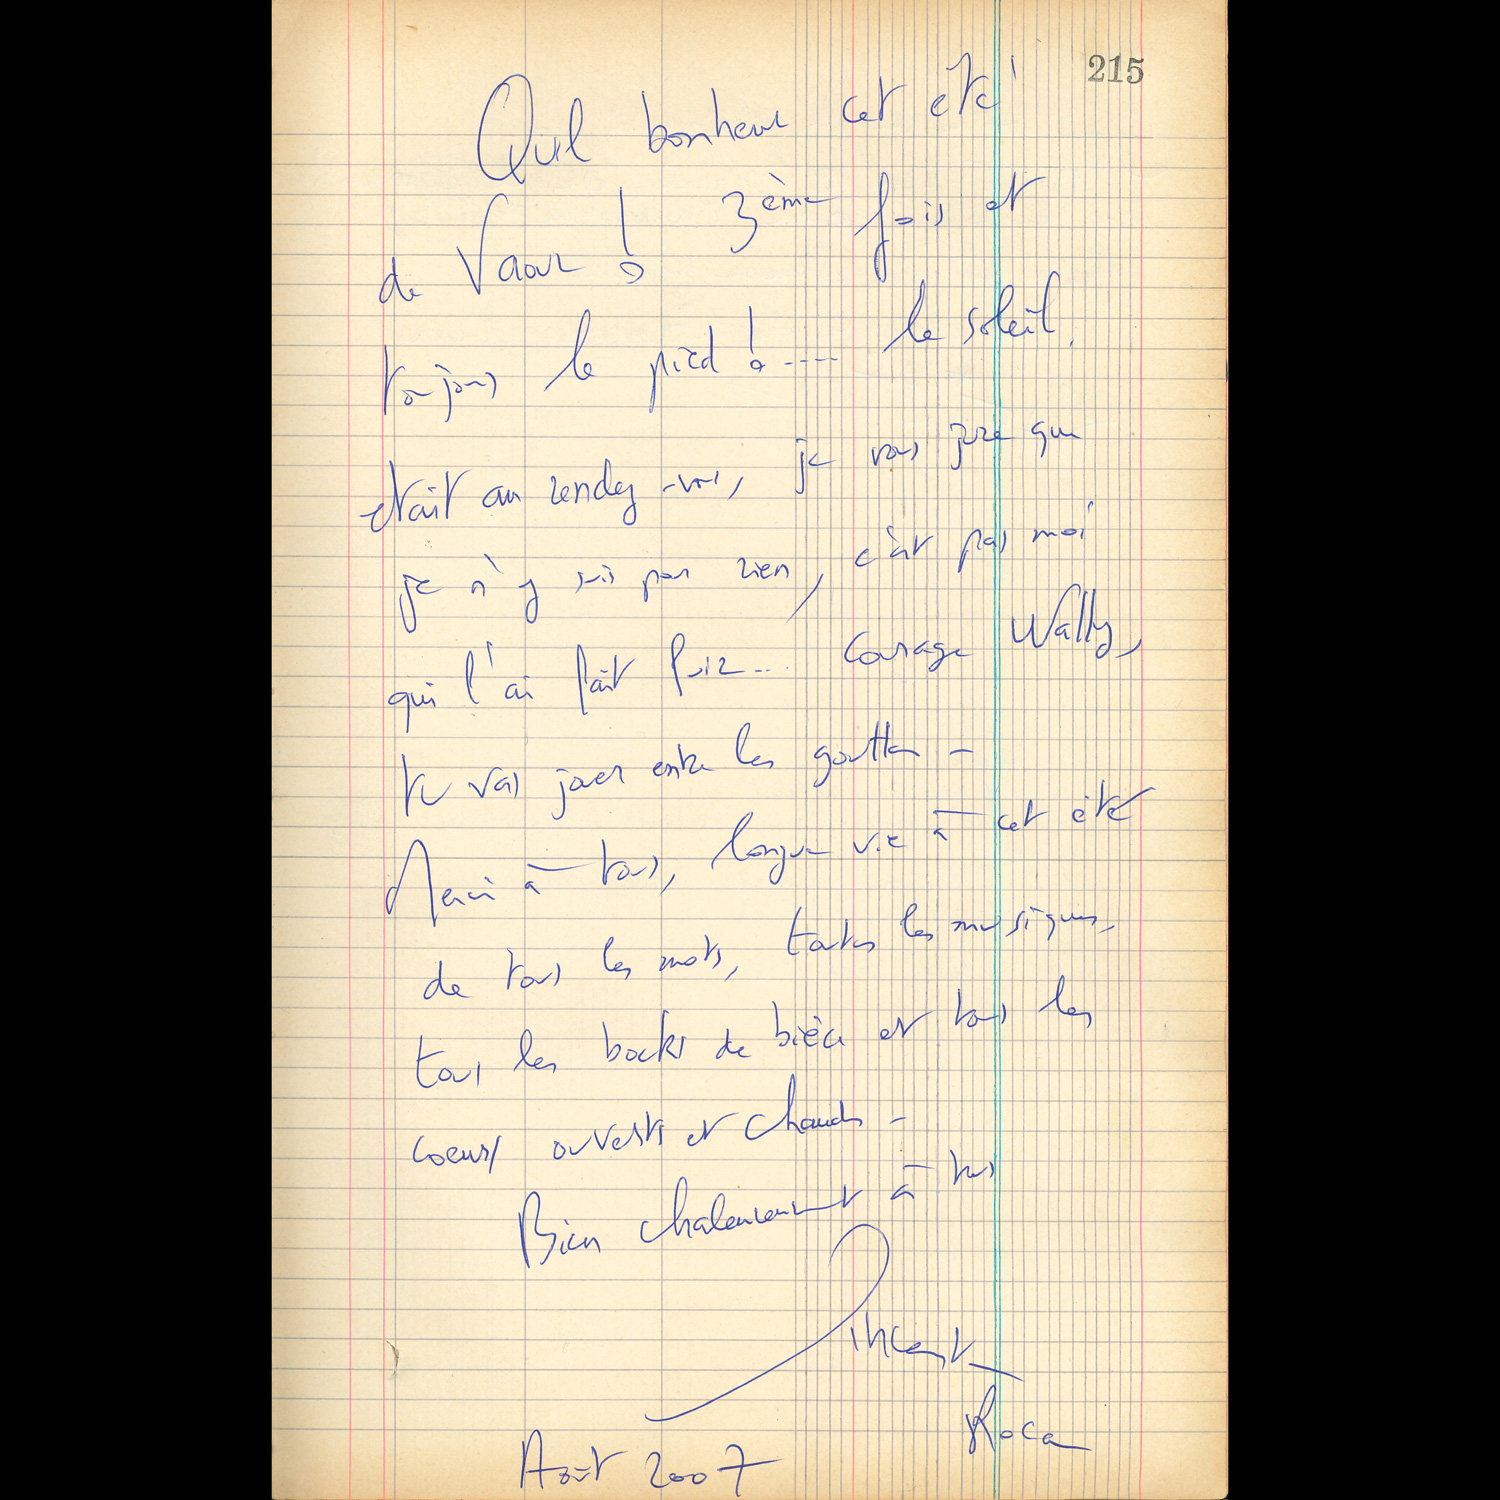 215
Quel bonheur cet été
de Vaour ! 3ème fois et
toujours le pied !.... le soleil
était au rendez-vous, je vous jure que
je n'y suis pour rien, c'est pas moi
qui l'ai fait fuir... Courage Wally,
tu vas jouer entre les gouttes -
Merci à tous, longue vie à cet été
de tous les mots, toutes les musiques,
tous les bocks de bière et tous les
coeurs ouverts et chauds -
Bien chaleureusement à tous
Vincent
Roca
Août 2007